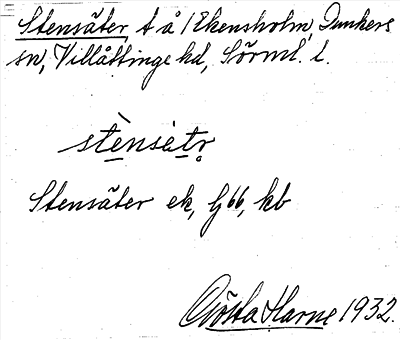 Stensäter, t å /Ekensholm, Dunkers
sn, Villåttinge hd, Sörml. l.
stènsètr̥
Stensäter ek, G66, kb
Gösta Harne 1932.